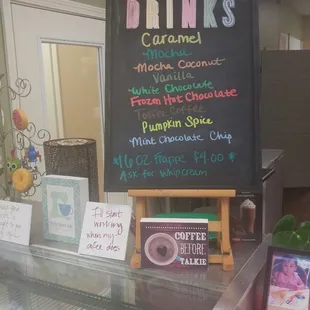 DRINKS
Caramel
Mocha
Mocha Coconut
Vanilla
White Chocolate
Frozen Hot Chocolate
Toffee Coffee
Pumpkin Spice
Mint Chocolate Chip
16 OZ Frappe $4.00
Ask for whip cream
I'll start
working
when my
coffee does.
COFFEE
BEFORE
TALKIE